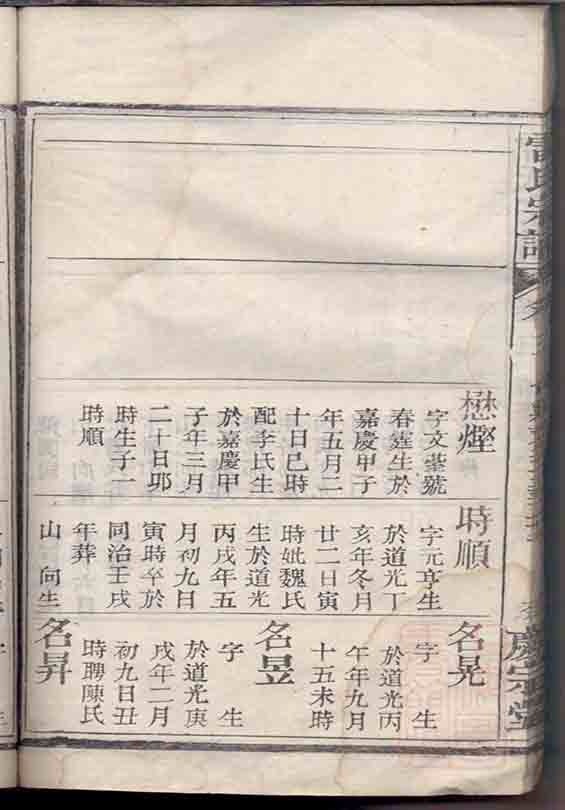 氏宗譜
懋煙
字文蓥號
春霆生於
嘉慶甲子
年五月二
十日巳時
配李氏生
於嘉慶甲
子年三月
二十日卯
時生子一
時順
時順
字元亨生
於道光丁
亥年冬月
廿二日寅
時妣魏氏
生於道光
丙戌年五
月初九日
寅時卒於
同治壬戌
年葬
山 向生
名晃
字 生
於道光丙
午年九月
十五未時
名昱
字 生
於道光庚
戌年二月
初九日丑
時聘陳氏
名昇